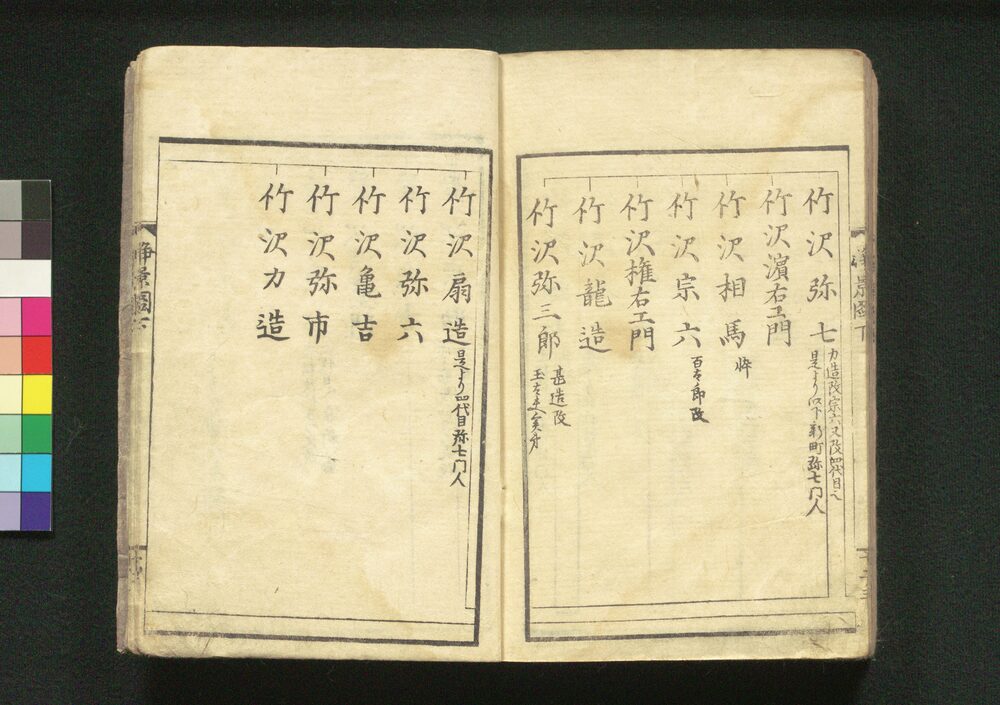 竹沢弥七
力造改宗六又改四代目
是より以下新町弥七門人
竹沢濱右エ門
竹沢相馬
忰
竹沢宗六
改
竹沢権右エ門
竹沢龍造
甚造改
竹沢弥三郎
竹沢扇造
是より四代目弥七門人
竹沢弥六
竹沢亀吉
竹沢弥市
竹沢力造